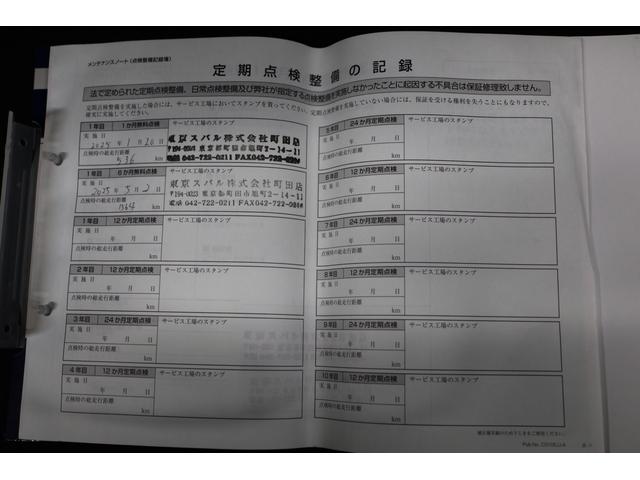 メンテナンスノート（点検整備記録簿）
定期点検整備の記録
法で定められた定期点検整備、日常点検整備及び弊社が指定する点検整備を実施しなかったことに起因する不具合は保証修理致しません。
定期点検整備を実施した場合には、サービス工場においてスタンプを貰ってください。定期点検整備を実施していない場合には、保証を受ける権利を失うこともなりますので、
確実に実施してください。
1年目 1か月無料点検
実施日
2025年1月20日
点検時の総走行距離
536 km
サービス工場のスタンプ
東京スバル株式会社町田店
〒194-0023 東京都町田市旭町2-14-11
電話042-722-0211 FAX042-722-0286
1年目 6か月無料点検
実施日
2025年5月2日
点検時の総走行距離
km
サービス工場のスタンプ
東京スバル株式会社町田店
〒194-0023 東京都町田市旭町2-14-11
電話042-722-0211 FAX042-722-0286
1年目 12か月定期点検
実施日
年 月 日
点検時の総走行距離
km
サービス工場のスタンプ
2年目 12か月定期点検
実施日
年 月 日
点検時の総走行距離
km
サービス工場のスタンプ
3年目 24か月定期点検
実施日
年 月 日
点検時の総走行距離
km
サービス工場のスタンプ
4年目 12か月定期点検
実施日
年 月 日
点検時の総走行距離
km
サービス工場のスタンプ
5年目 24か月定期点検
実施日
年 月 日
点検時の総走行距離
km
サービス工場のスタンプ
6年目 12か月定期点検
実施日
年 月 日
点検時の総走行距離
km
サービス工場のスタンプ
7年目 24か月定期点検
実施日
年 月 日
点検時の総走行距離
km
サービス工場のスタンプ
8年目 12か月定期点検
実施日
年 月 日
点検時の総走行距離
km
サービス工場のスタンプ
9年目 24か月定期点検
実施日
年 月 日
点検時の総走行距離
km
サービス工場のスタンプ
10年目 12か月定期点検
実施日
年 月 日
点検時の総走行距離
km
サービス工場のスタンプ